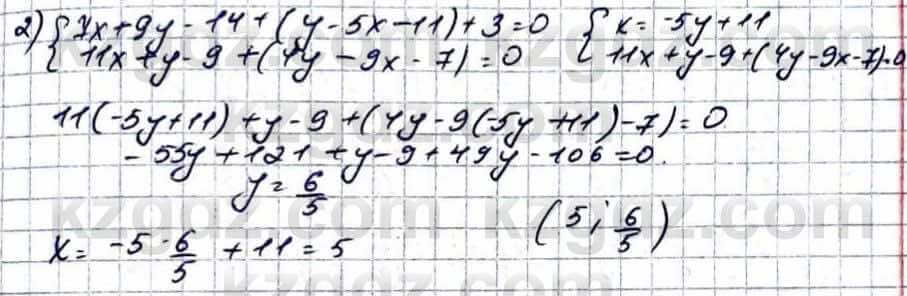 2) { 7x+9y-14+(y-5x-11)+3=0 { x=-5y+11
11x+y-9+(4y-9x-7)=0 11x+y-9+(4y-9x-7)=0
11(-5y+11)+y-9+(4y-9(-5y+11)-7)=0
-55y+121+y-9+49y-106=0.
y= 6/5
x= -5·6/5 +11=5 (5; 6/5)
kzgdz.com